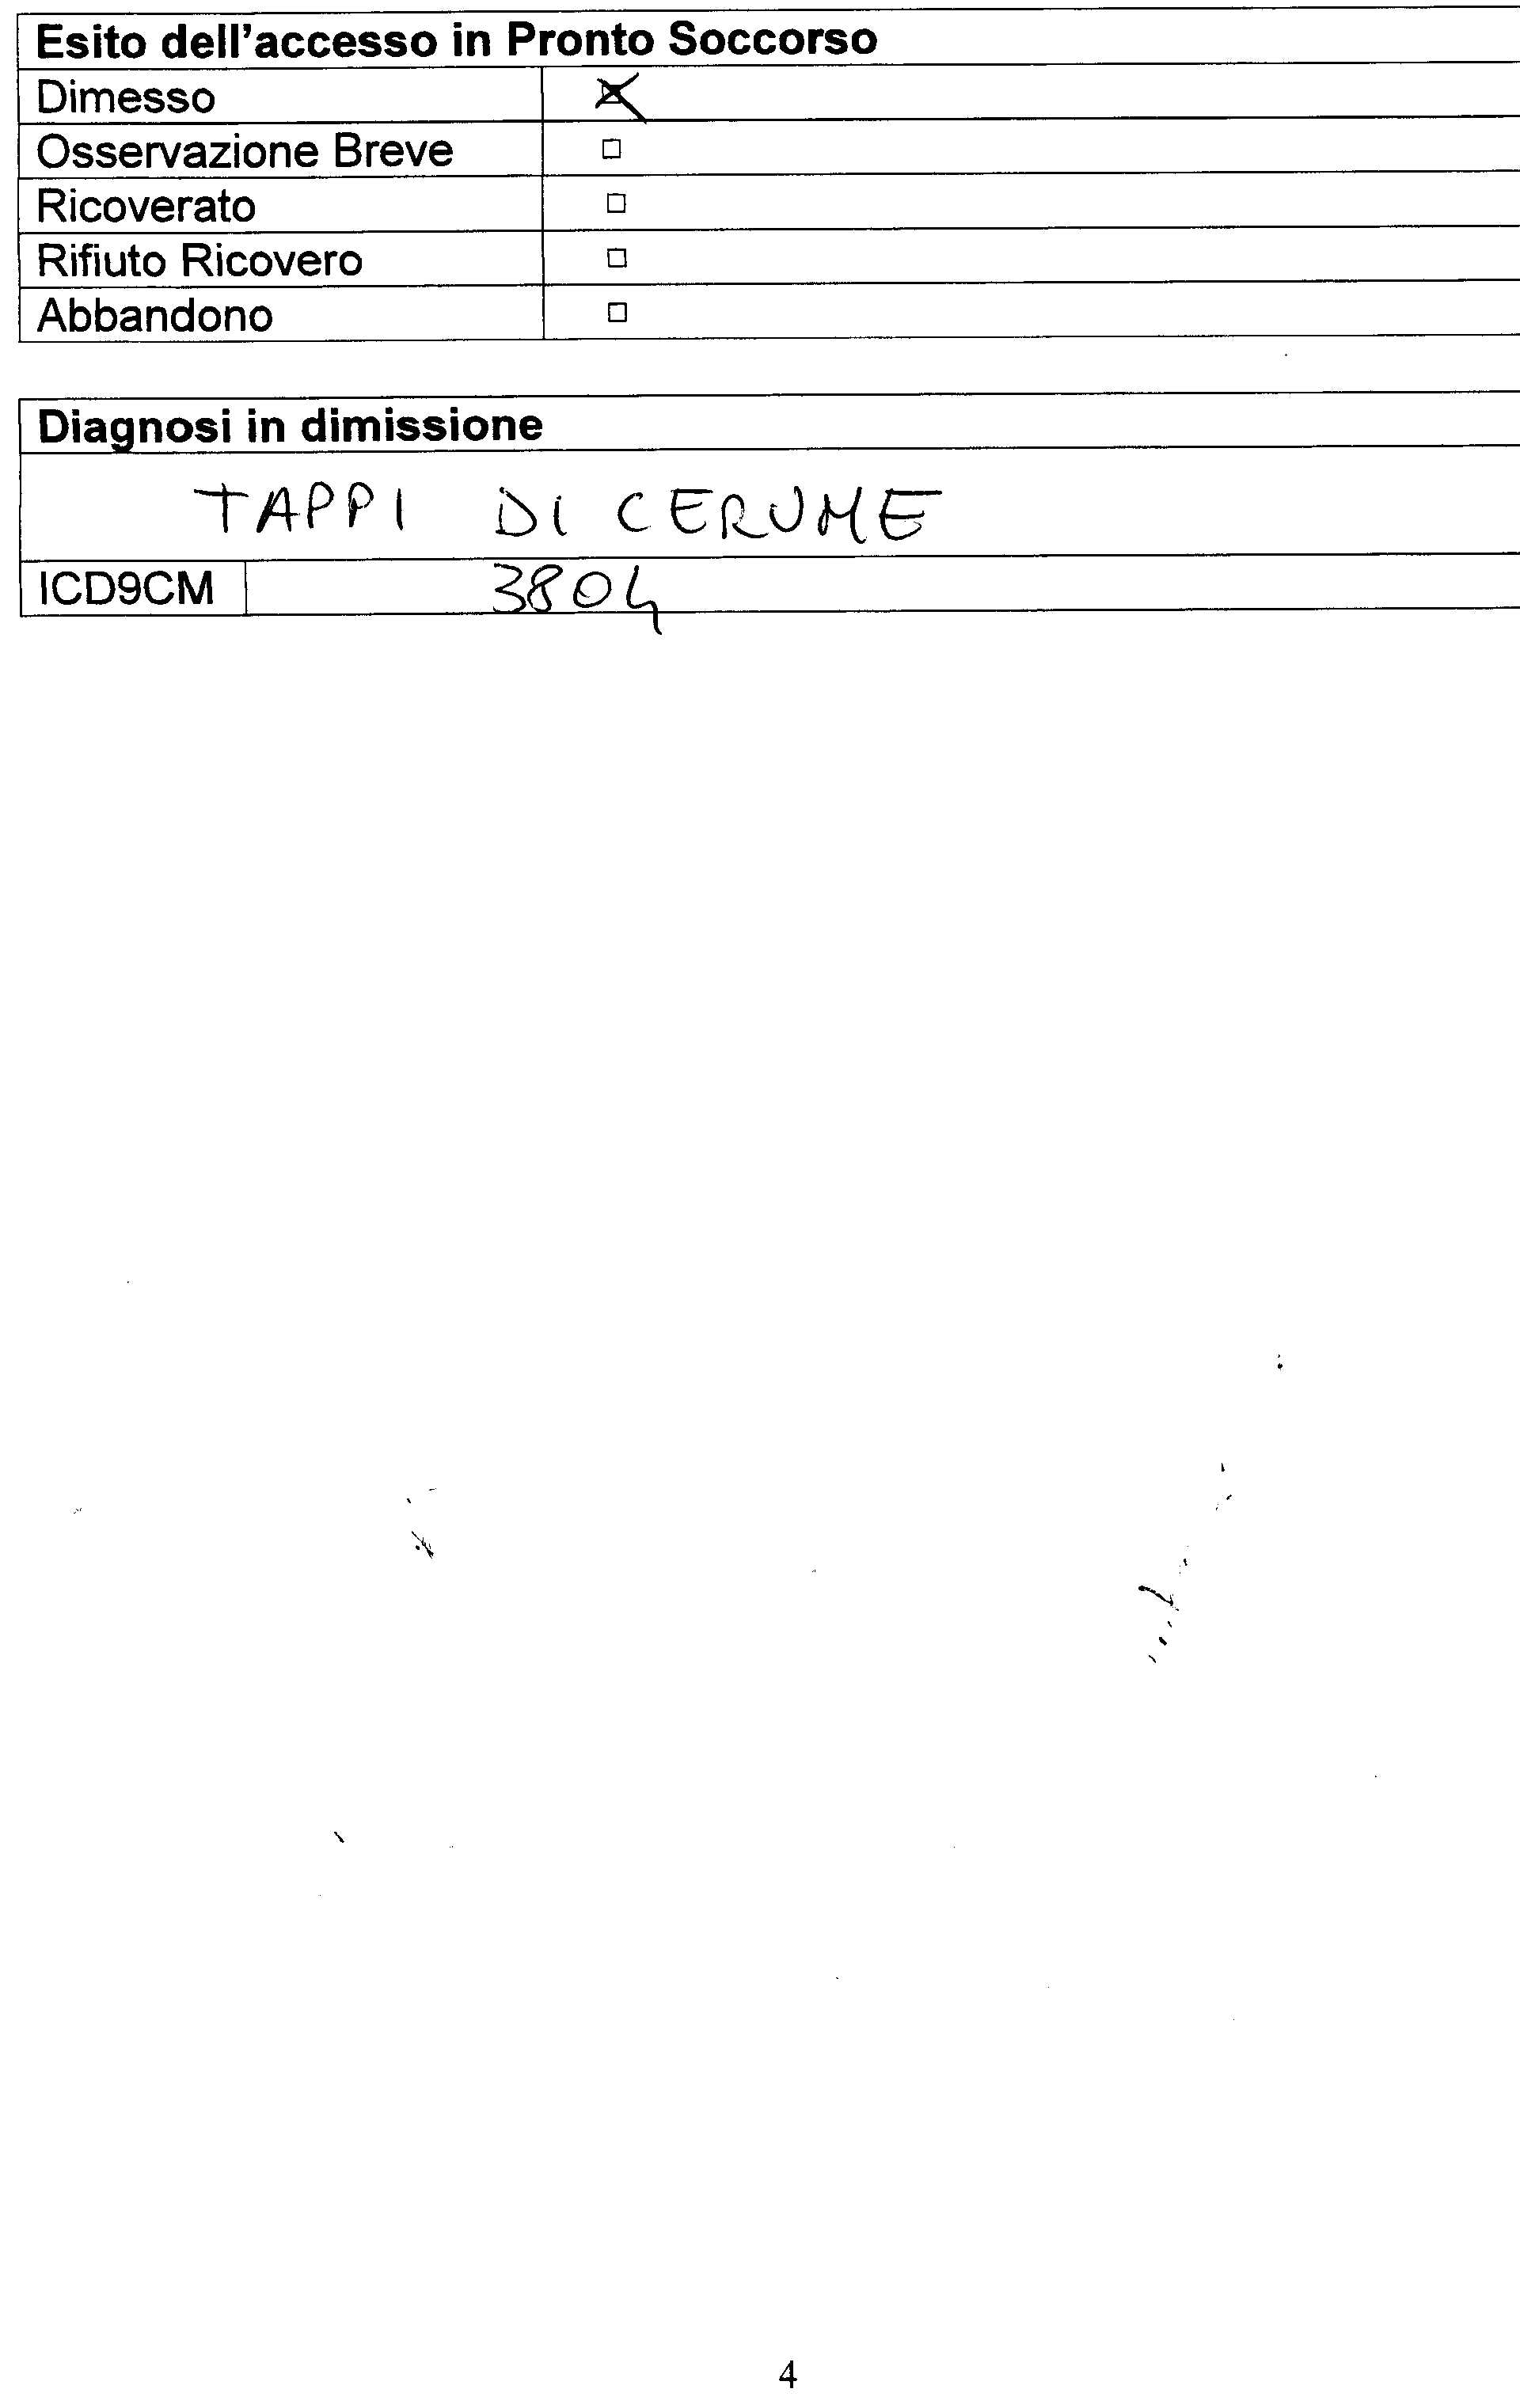 Esito dell'accesso in Pronto Soccorso
Dimesso
Osservazione Breve
Ricoverato
Rifiuto Ricovero
Abbandono
Diagnosi in dimissione
TAPPI DI CERUME
ICD9CM 3804
4